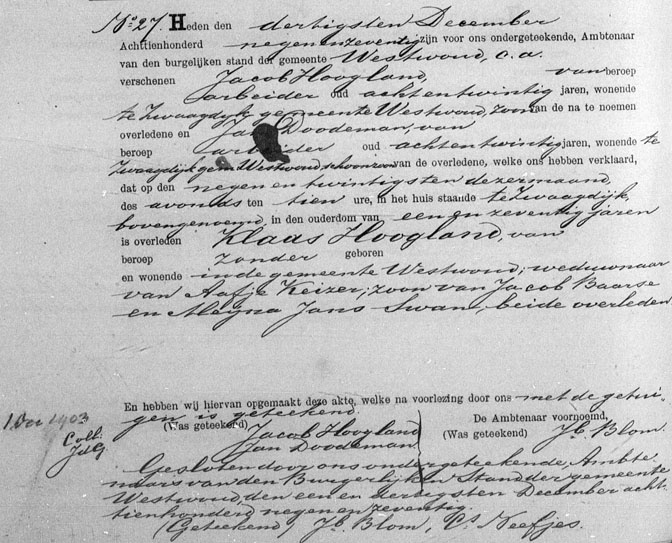 No. 27. Heden den dertigsten December
Achttienhonderd negenenzeventig zijn voor ons ondergeteekende, Ambtenaar
van den burgelijken stand der gemeente Westwoud, c.a.
verschenen Jacob Hoogland, van beroep
arbeider oud achtentwintig jaren, wonende
te Zwaagdijk gemeente Westwoud, zoon van de na te noemen
overledene en Jan Doodeman, van
beroep arbeider oud achtentwintig jaren, wonende te
Zwaagdijk gem Westwoud, schoonzoon van de overledene, welke ons hebben verklaard,
dat op den negen en twintigsten dezer maand,
des avonds ten tien ure, in het huis staande te Zwaagdijk,
bovengenoemd, in den ouderdom van een en zeventig jaren
is overleden Klaas Hoogland, van
beroep zonder geboren
en wonende in de gemeente Westwoud; weduwnaar
van Aafje Keizer; zoon van Jacob Baarse
en Jans Swan, beide overleden
En hebben wij hiervan opgemaakt deze akte, welke na voorlezing door ons met de getui-
gen is geteekend.
(Was geteekerd) Jacob Hoogland
Jan Doodeman
De Ambtenaar voornoemd,
(Was geteekend) Jb. Blom.
1 Dec 1903
Coll:
JdG.
Gesloten door ons ondergeteekende, Ambte
naars van den Burgerlijken Stand der gemeente
Westwoud, den een en dertigsten December acht
tienhonderd negen en zeventig.
(Geteekend) Jb. Blom, Cs. Neefjes.